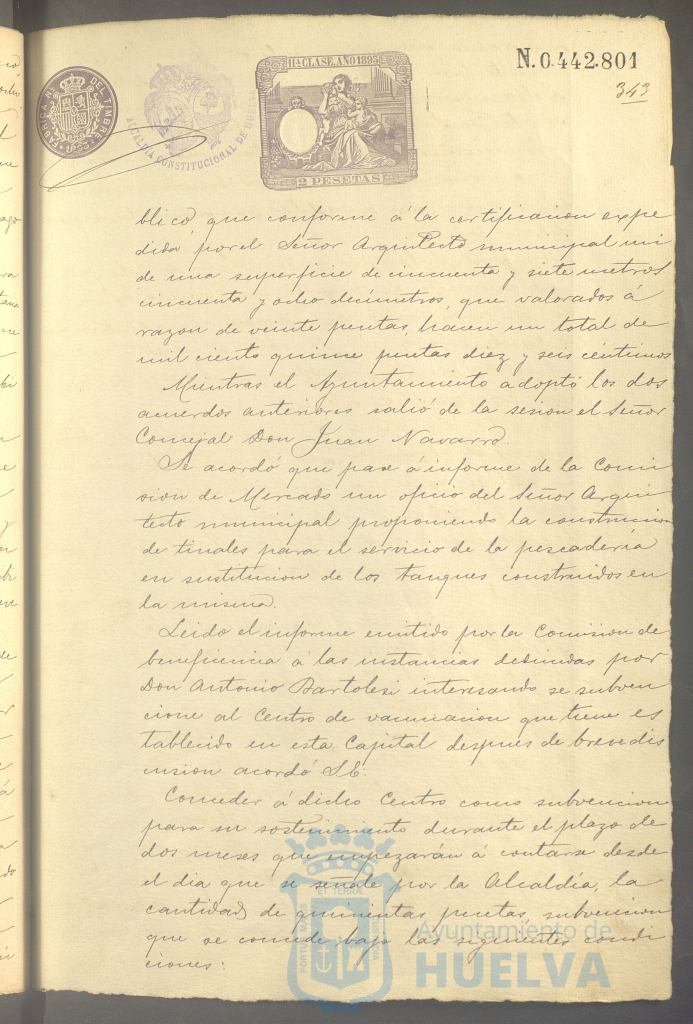 FABRICA Nal DEL TIMBRE
1893
ALCALDÍA CONSTITUCIONAL DE HUELVA
11ª CLASE, AÑO 1893
2 PESETAS
N.0.442.801
343
blico, que conforme á la certificacion expe
dida por el Señor Arquitecto municipal mi
de una superficie de cincuenta y siete metros
cincuenta y ocho decímetros, que valorados á
razon de veinte pesetas, hacen un total de
mil ciento quince pesetas diez y seis céntimos
Mientras el Ayuntamiento adoptó los dos
acuerdos anteriores salió de la sesion el Señor
Concejal Don Juan Navarro.
Se acordó que pase á informe de la Comi
sion de Mercado un oficio del Señor Arqui
tecto municipal proponiendo la construccion
de tinales para el servicio de la pescadería
en sustitucion de los tanques construidos en
la misma.
Leido el informe emitido por la Comision de
beneficencia á las instancias deducidas por
Don Antonio Bartolesi interesando se subven
cione al Centro de vacunacion que tiene es
tablecido en esta Capital despues de breve dis
cusion acordó S.E.
Conceder á dicho Centro como subvencion
para su sostenimiento durante el plazo de
dos meses que empezarán á contarse desde
el dia que se señale por la Alcaldía, la
cantidad de quinientas pesetas, subvencion
que se concede bajo las siguientes condi
ciones:
PORTUS MARIS ET TERRAE CUSTODIA
Ayuntamiento de
HUELVA